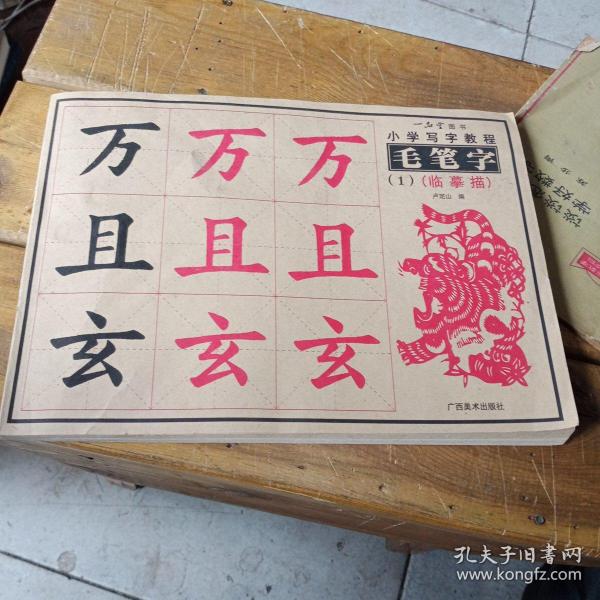 万 万 万
且 且 且
玄 玄 玄
图书
小学写字教程
毛笔字
(1)(临摹描)
卢定山 编
广西美术出版社
孔夫子旧书网
www.kongfz.com